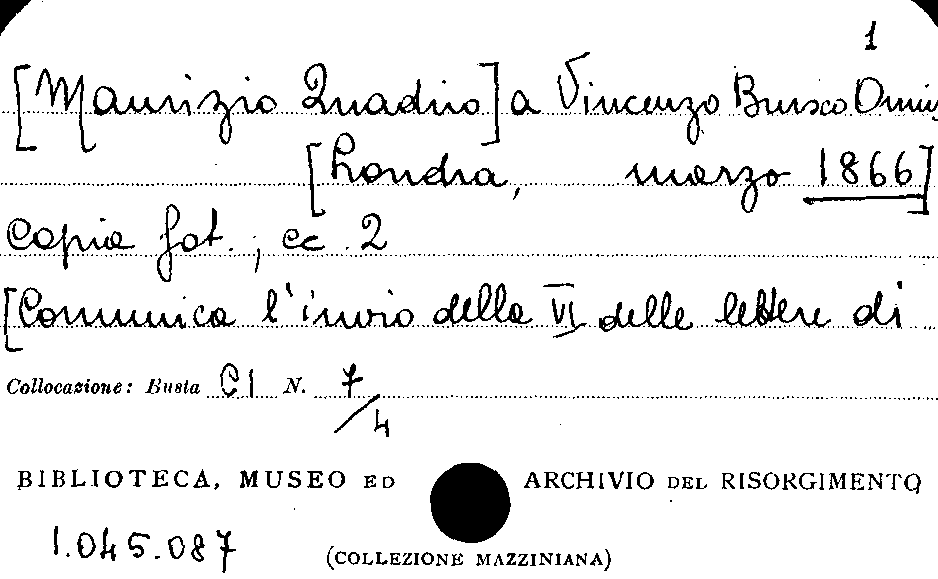 1
[Maurizio Quadrio] a Vincenzo Brusco Onnis,
[Londra, marzo 1866]
Copia fot., cc. 2
[Comunica l'invio della VI delle lettere di
Collocazione: Busta CI N. 7/4
BIBLIOTECA, MUSEO ED ARCHIVIO DEL RISORGIMENTO
1.045.087 (COLLEZIONE MAZZINIANA)